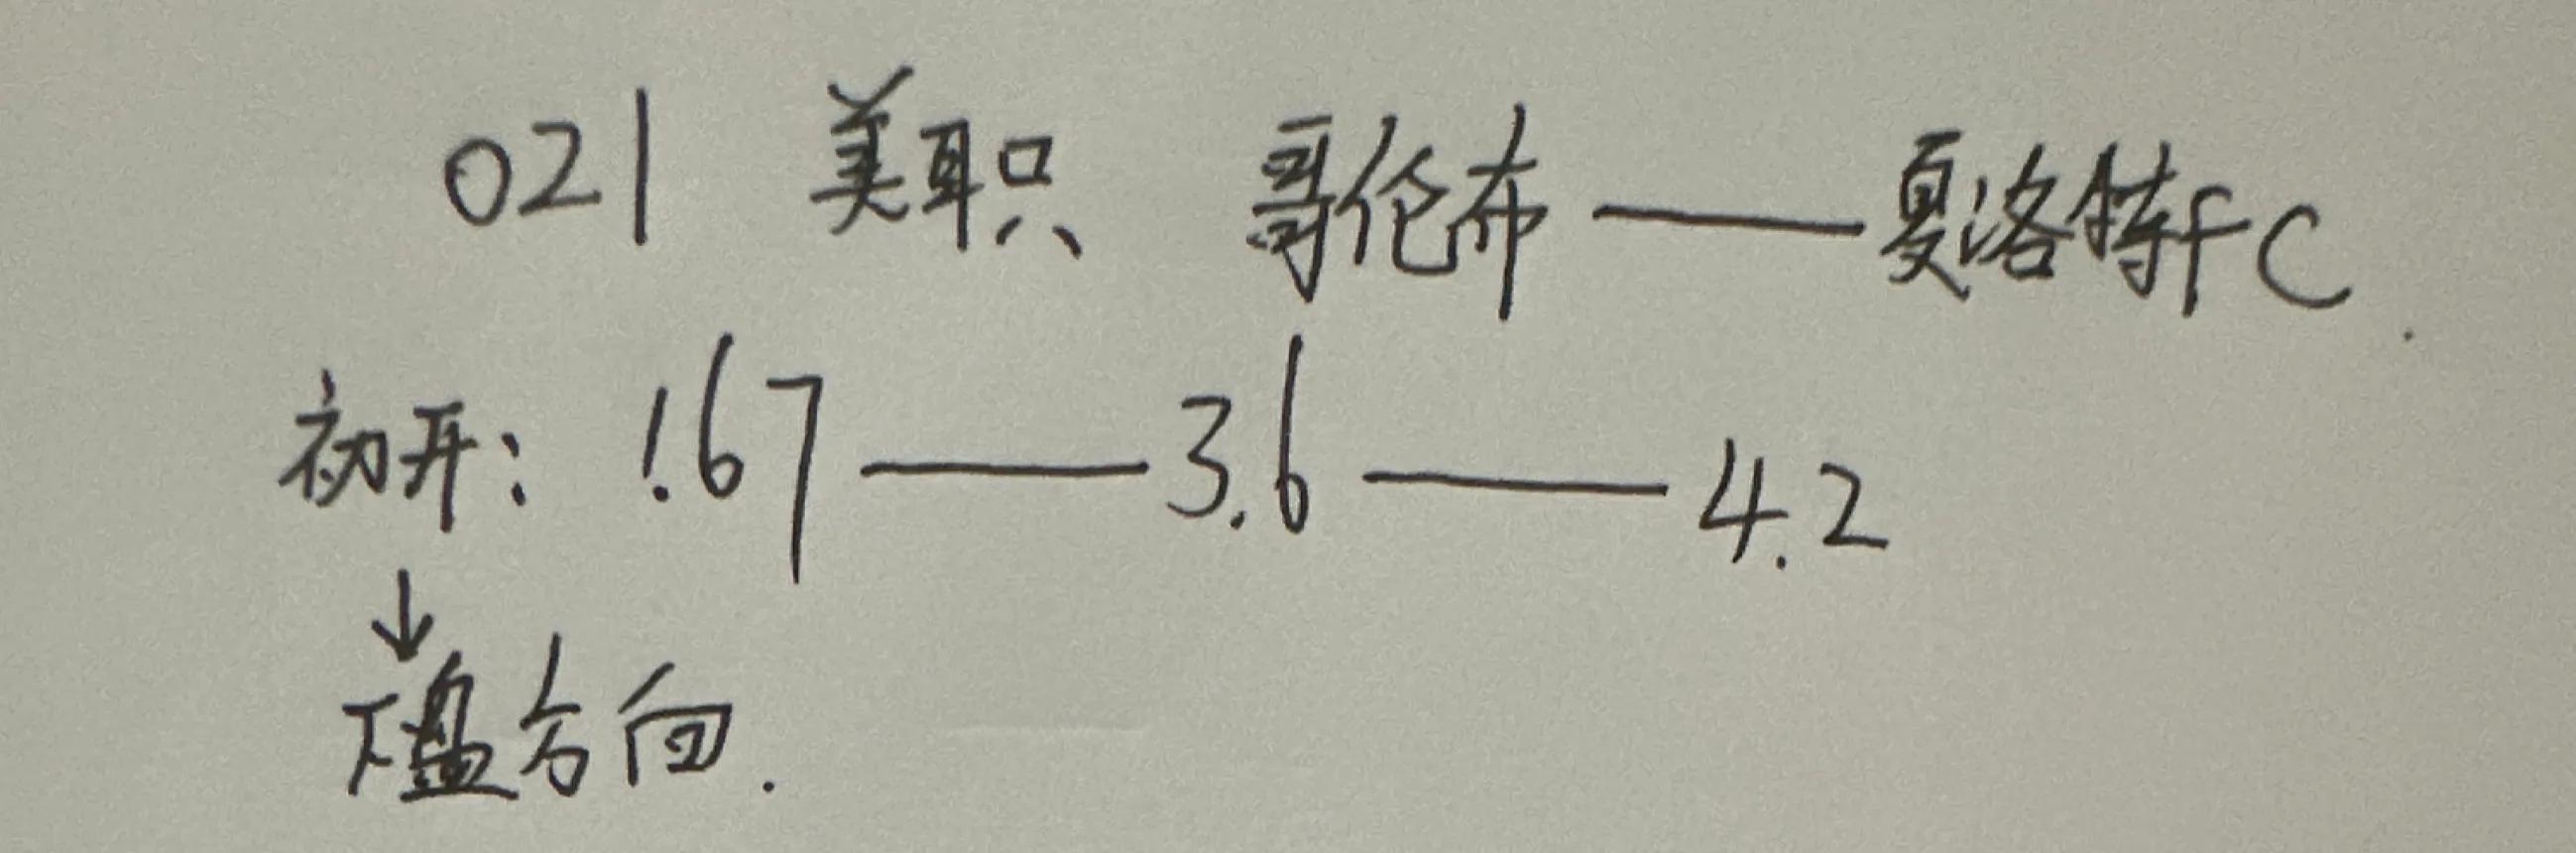 021 美职 哥伦布——夏洛特FC.
初开：1.67——3.6——4.2
↓
下盘方向.